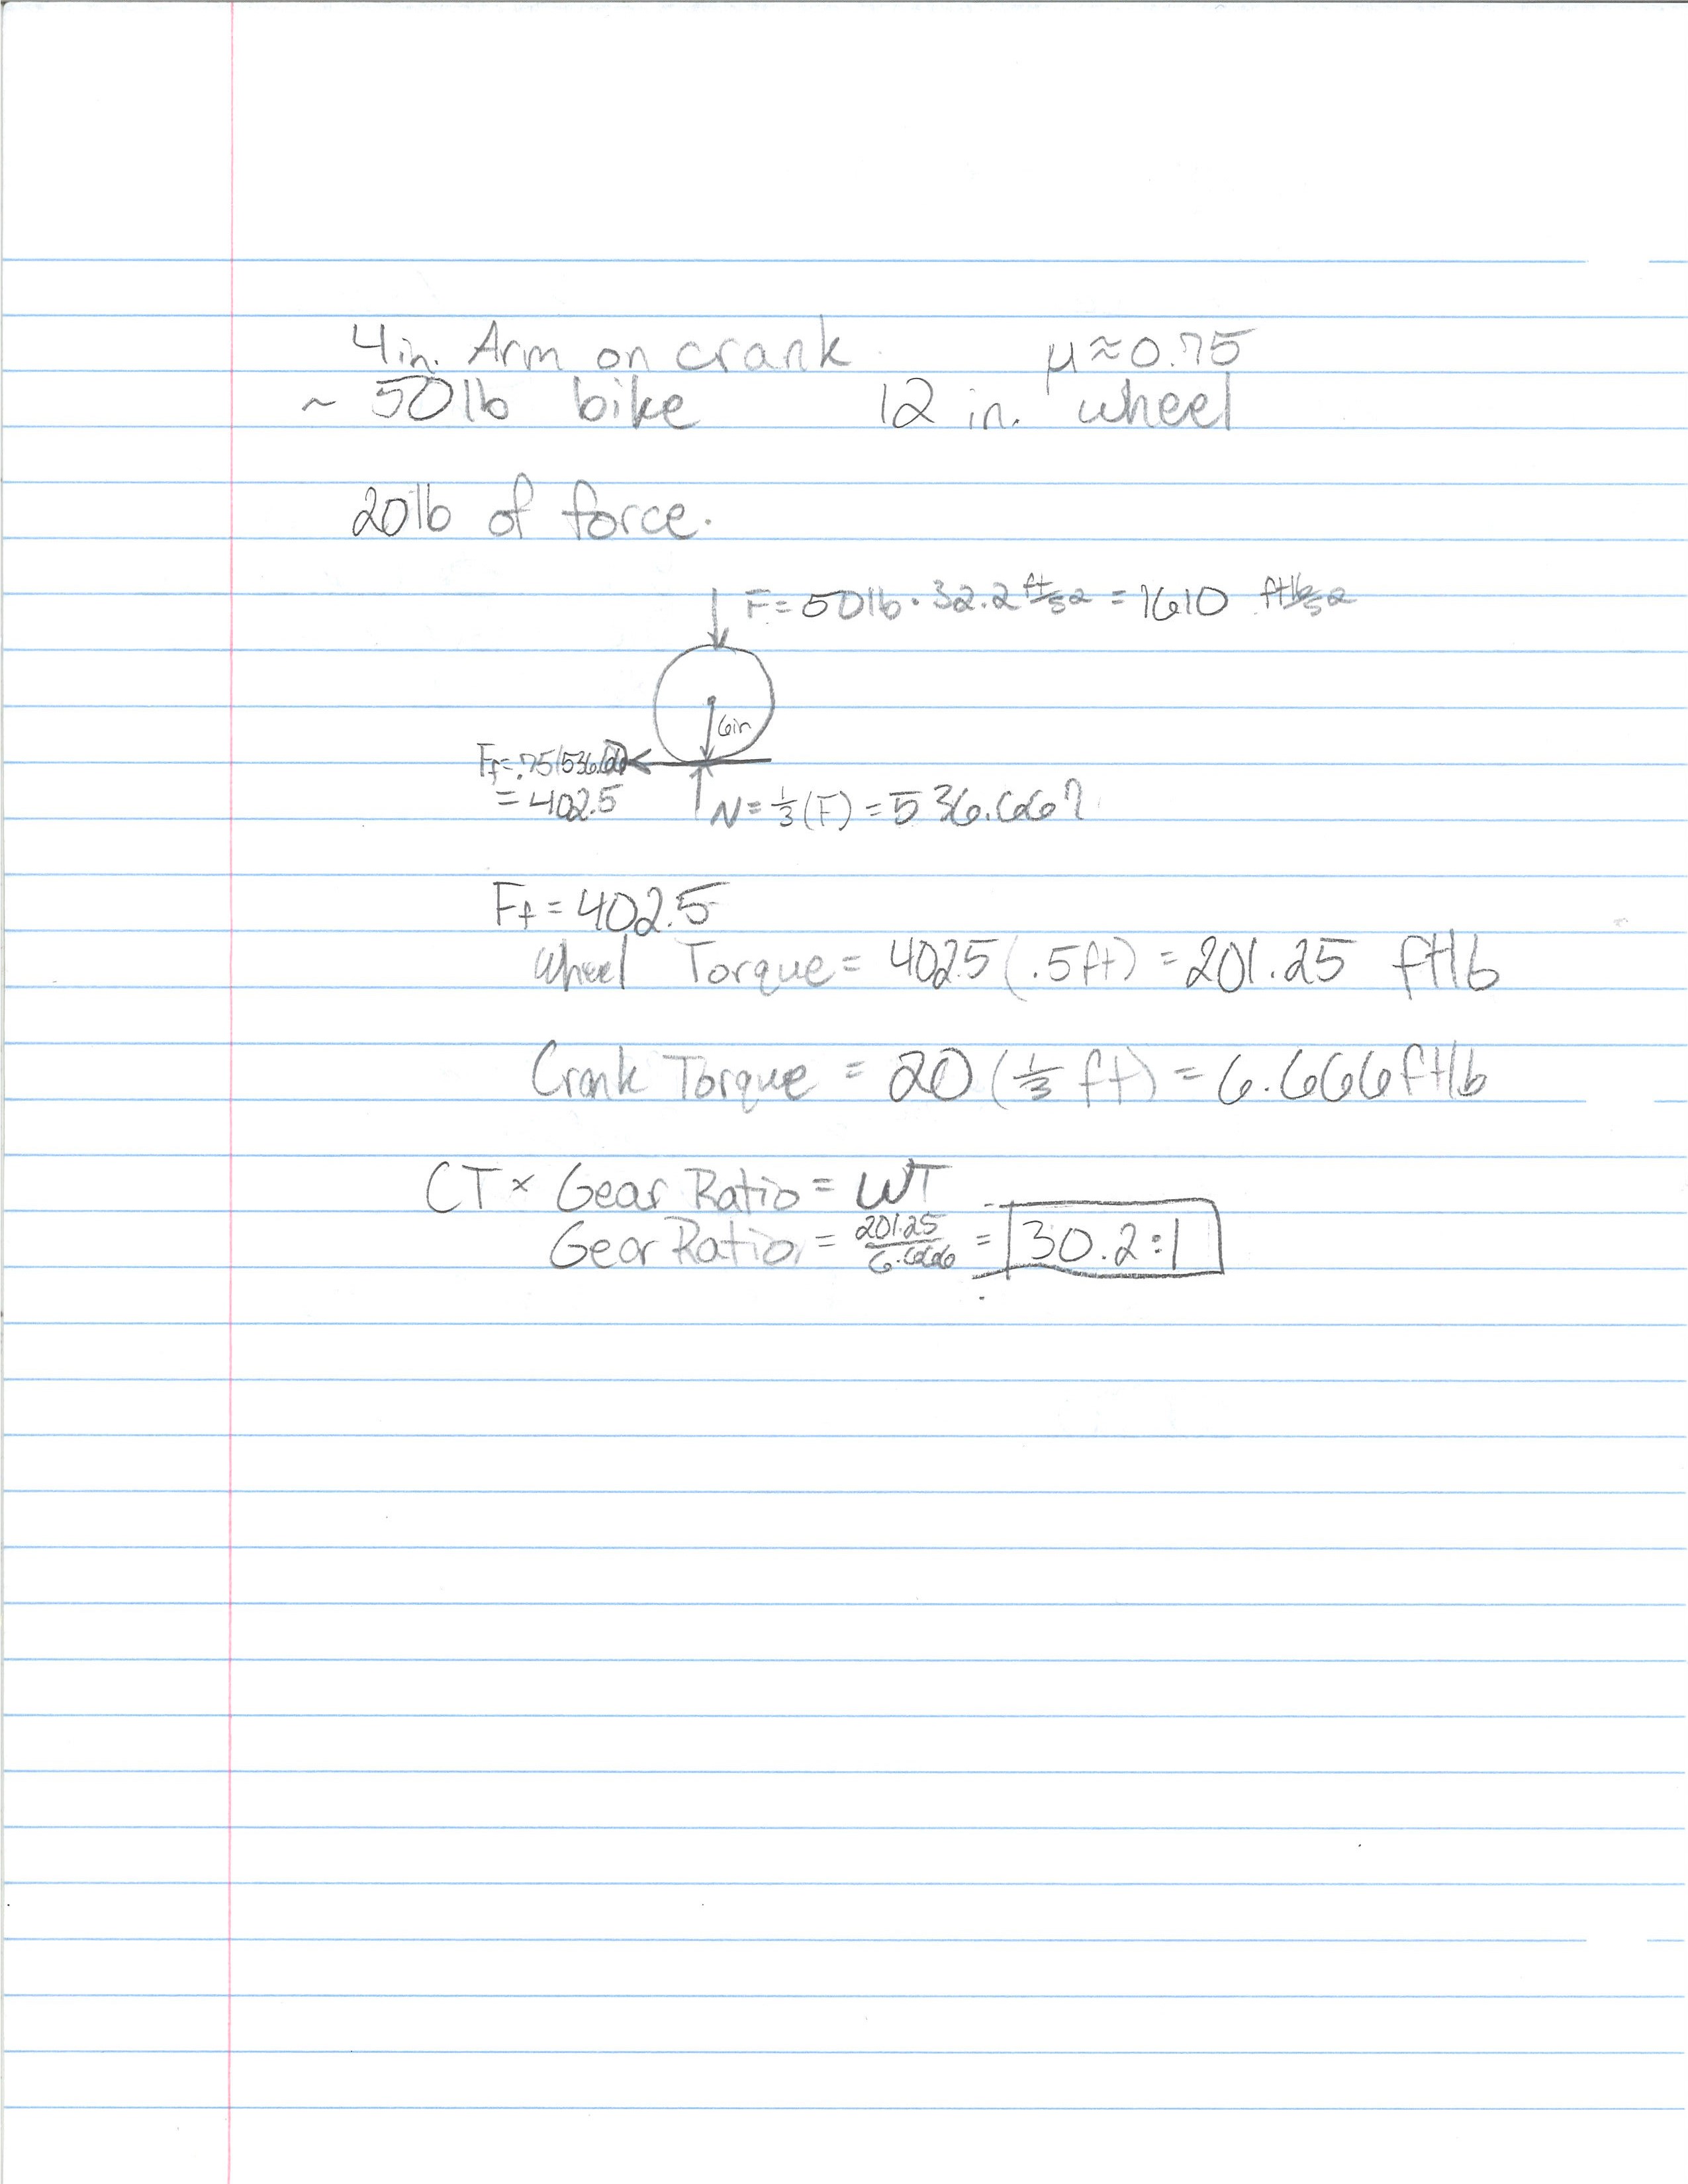 4in. Arm on crank μ≈0.75
~ 50lb bike 12 in. wheel
20lb of force.
F = 50lb · 32.2 ft/s2 = 1610 ftlb/s2
6in
Ff = .75(536.66)
= 402.5
N = 1/3 (F) = 536.667
Ff = 402.5
Wheel Torque = 402.5 (.5ft) = 201.25 ftlb
Crank Torque = 20 (1/3 ft) = 6.666ftlb
CT × Gear Ratio = WT
Gear Ratio = 201.25/6.666 = 30.2:1